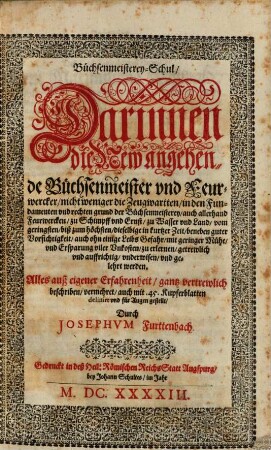 Büchsenmeisterey-Schul/
Darinnen
die New angehen-
de Büchsenmeister vnd Feur-
wercker/ nicht weniger die Zeugwartten/ in den Fun-
damenten vnd rechten grund der Büchsenmeisterey/ auch allerhand
Feurwercken/ zu Schimpff vnd Ernst/ zu Wasser vnd Land/ vom
geringsten/ biß zum höchsten/ dieselbige in kurtzer Zeit/ beneben guter
Vorsichtigkeit/ auch ohn einige Leibs Gefahr/ mit geringer Mühe/
vnd Ersparung viler Vnkosten/ zu erlernen/ getrewlich
vnd auffrichtig/ vnderwisen/ vnd ge-
lehrt werden,
Alles auß eigner Erfahrenheit/ gantz vertrewlich
beschriben/ vermehret/ auch mit 45. Kupfferblatten
deliniert vnd für Augen gestellt/
Durch
JOSEPHVM Furttenbach.
Gedruckt in deß Heil: Römischen Reichs Statt Augspurg/
bey Johann Schultes/ im Jahr
M. DC. XXXXIII.